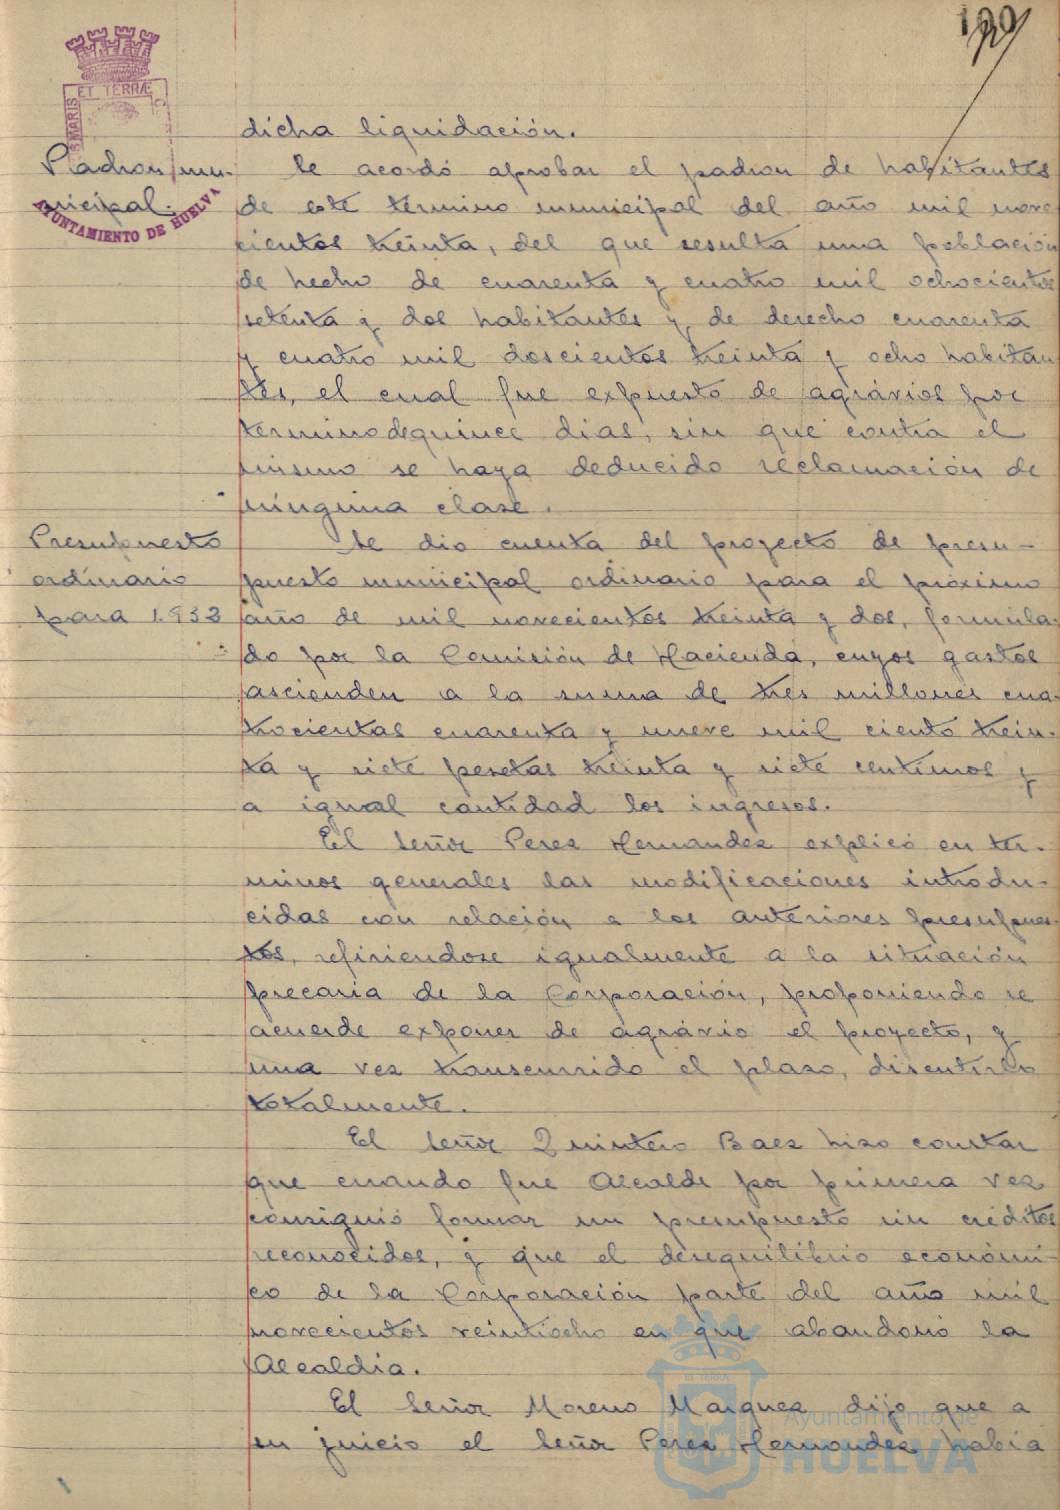 ET TERRÆ
MARIS
AYUNTAMIENTO DE HUELVA
dicha liquidación.
Padron mu-
nicipal.
Se acordó aprobar el padron de habitantes
de este termino municipal del año mil nove
cientos treinta, del que resulta una población
de hecho de cuarenta y cuatro mil ochocientos
setenta y dos habitantes y de derecho cuarenta
y cuatro mil doscientos treinta y ocho habitan
tes, el cual fue expuesto de agrávios por
termino de quince dias, sin que contra el
mismo se haya deducido reclamación de
ninguna clase.
Presupuesto
ordinario
para 1.932
Se dio cuenta del proyecto de presu-
puesto municipal ordinario para el próximo
año de mil novecientos treinta y dos, formula-
do por la Comisión de Hacienda, cuyos gastos
ascienden a la suma de tres millones cua-
trocientas cuarenta y nueve mil ciento trein-
ta y siete pesetas treinta y siete centimos y
a igual cantidad los ingresos.
El Señor Perez Hernandez explicó en ter-
minos generales las modificaciones introdu-
cidas con relación a los anteriores presupues-
tos, refiriendose igualmente a la situación
precaria de la Corporación, proponiendo se
acuerde exponer de agrávio el proyecto, y
una vez transcurrido el plazo, discutirlo
totalmente.
El Señor Quintero Baez hizo constar
que cuando fue Alcalde por primera vez
consiguió formar un presupuesto sin créditos
reconocidos, y que el desequilibrio económi-
co de la Corporación parte del año mil
novecientos veintiocho en que abandonó la
Alcaldia.
El Señor Moreno Marquez dijo que a
su juicio el Señor Perez Hernandez había
Ayuntamiento de
HUELVA